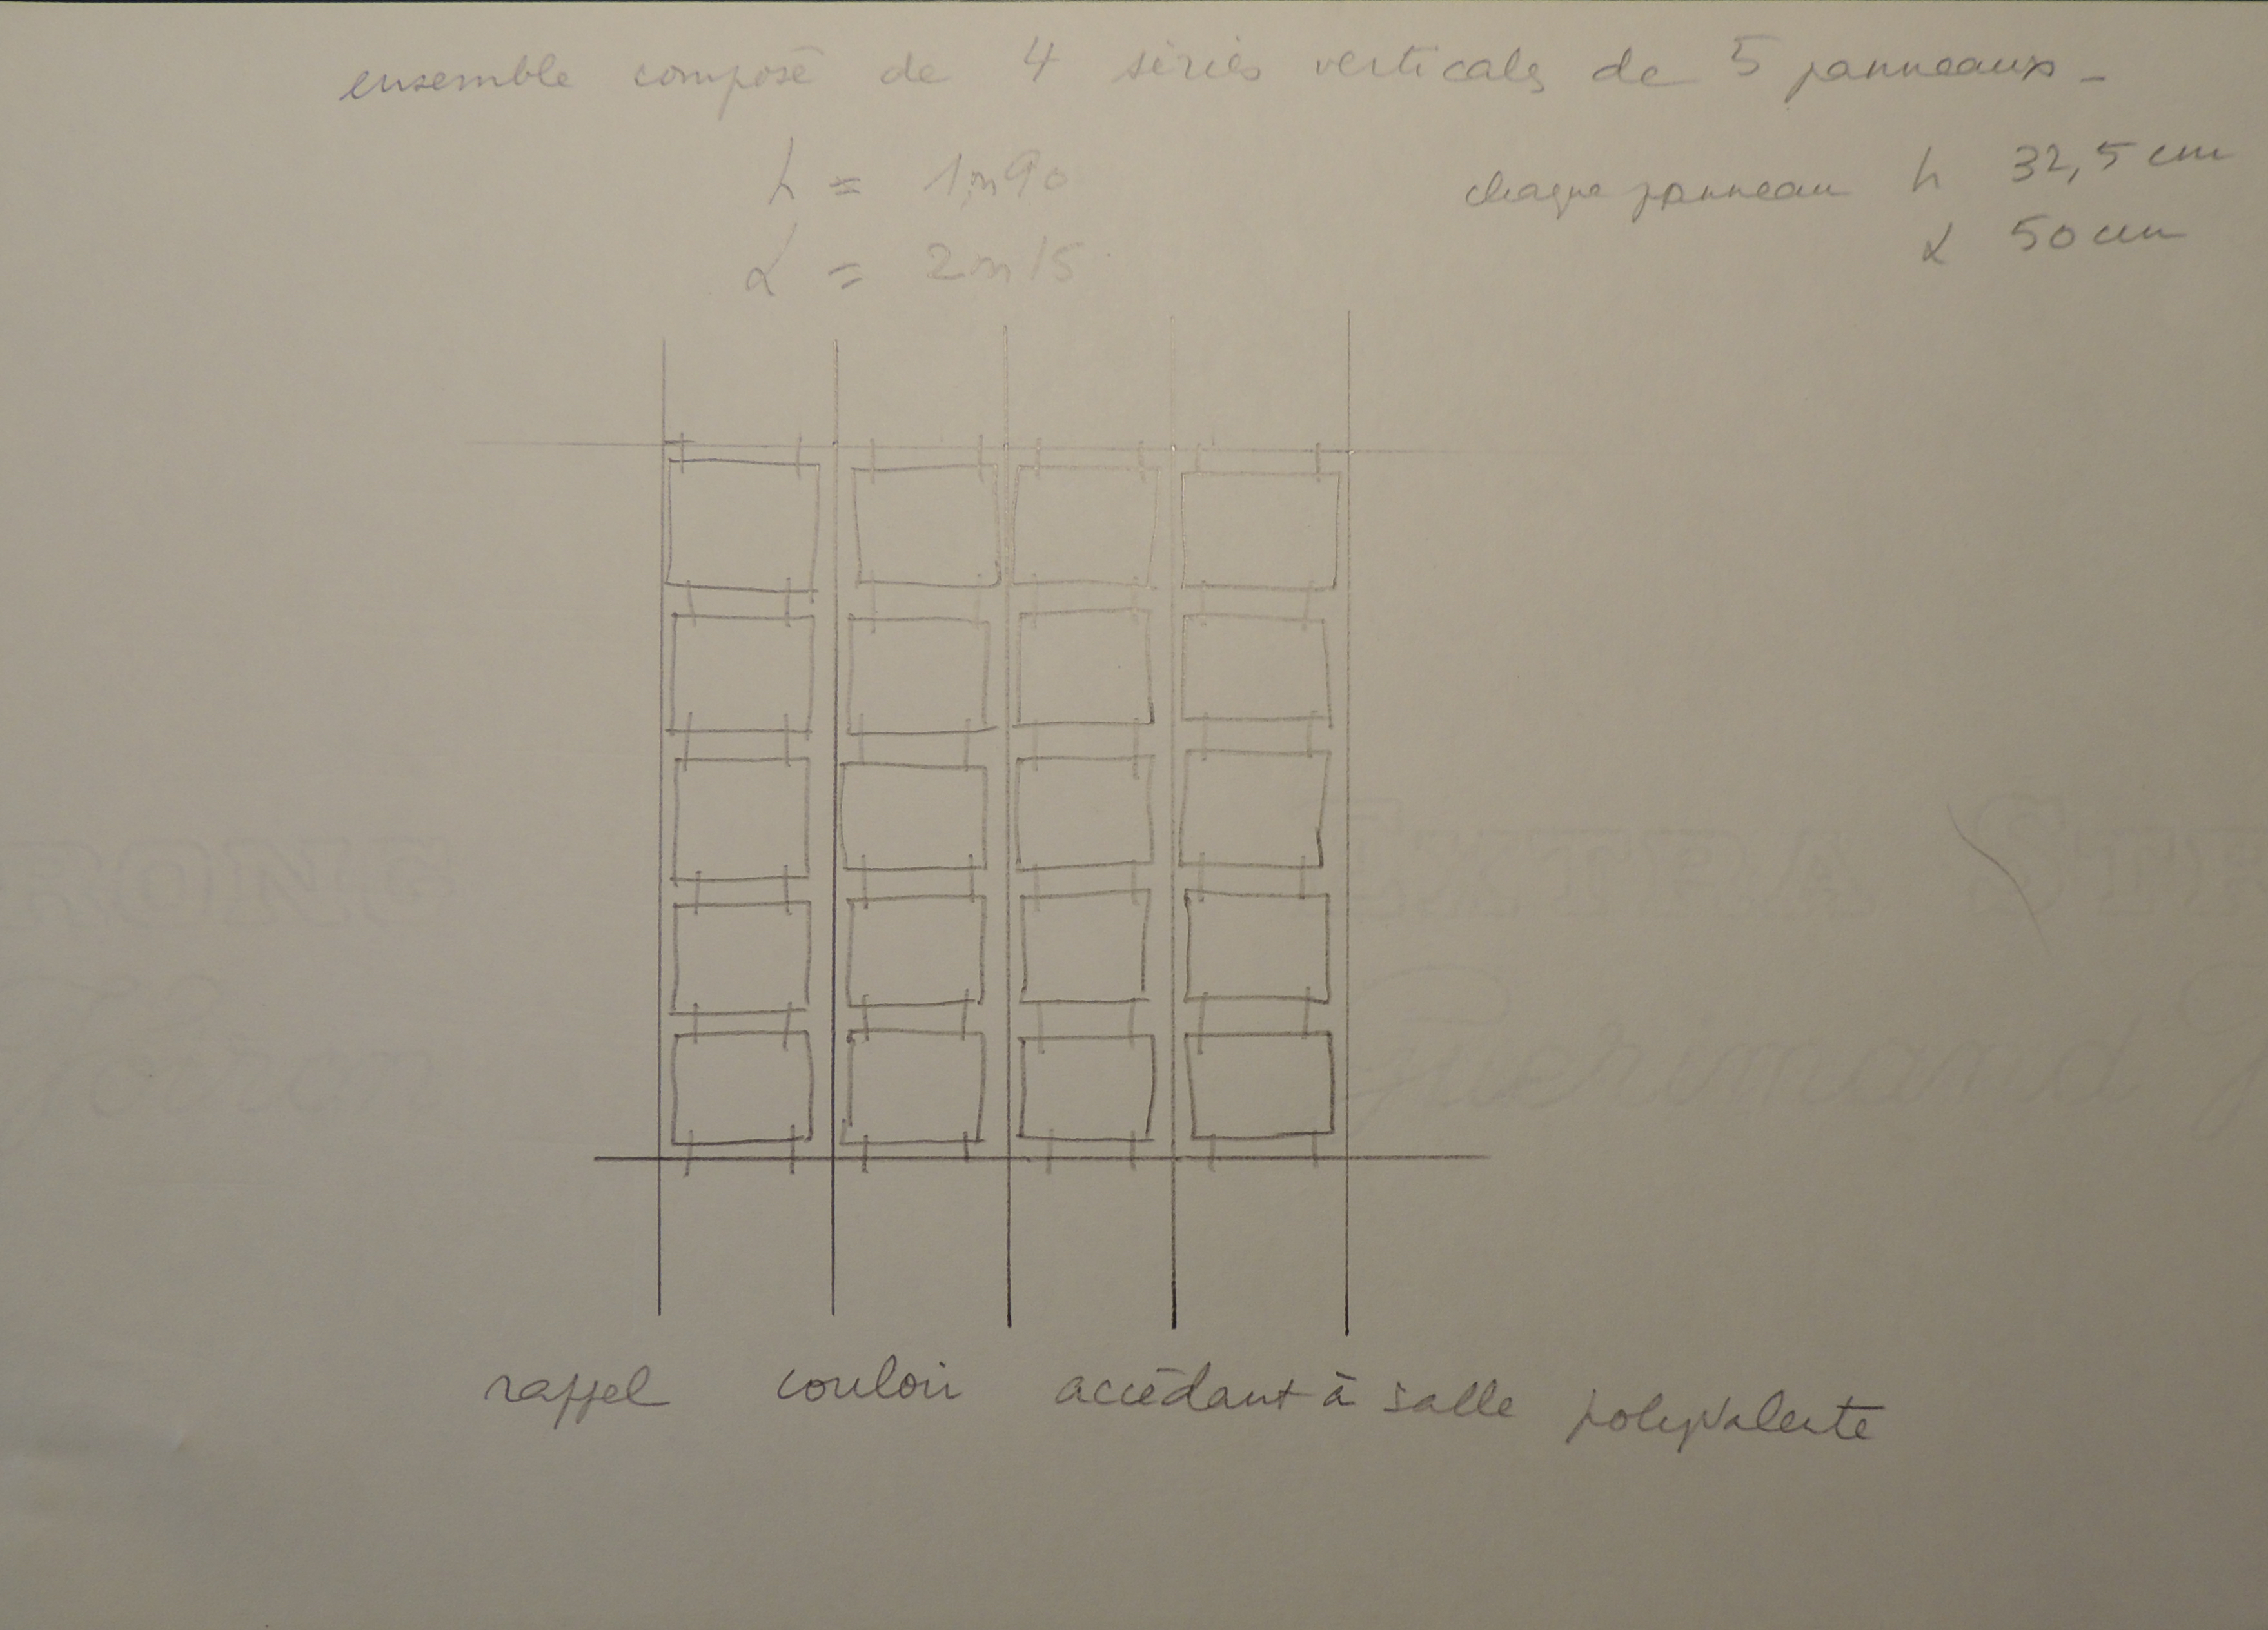 ensemble composé de 4 séries verticales de 5 panneaux -
h = 1m90
l = 2m15
chaque panneau h 32,5 cm
l 50 cm
rappel couloir accédant à salle polyvalente